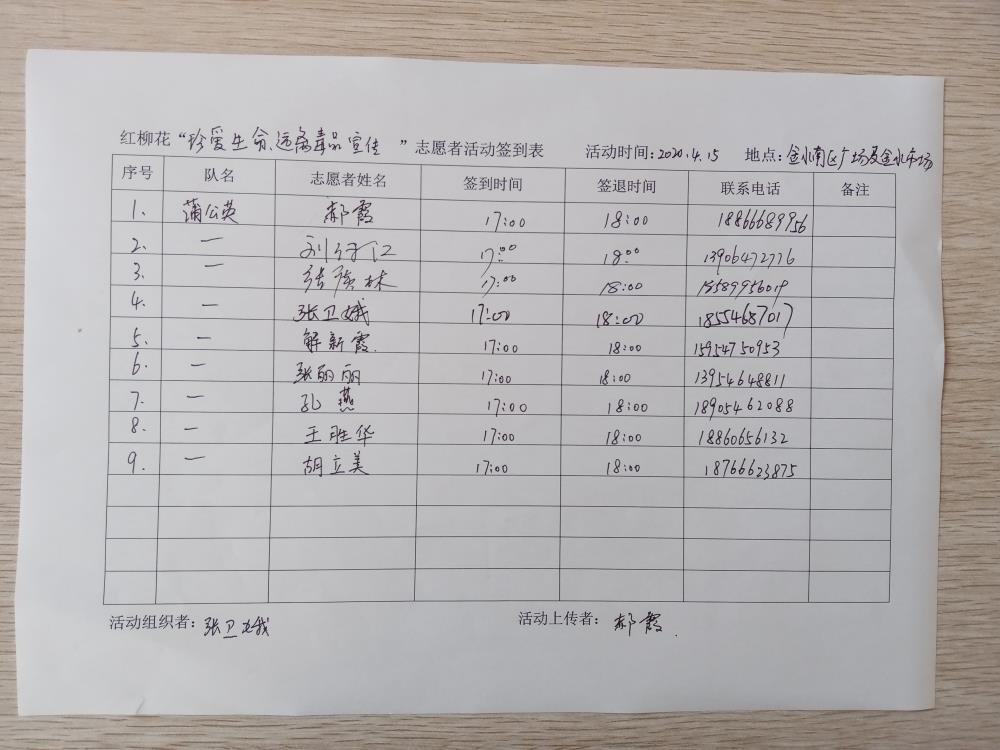 红柳花“珍爱生命、远离毒品宣传 ”志愿者活动签到表 活动时间:2020.4.15 地点:金水南区广场及金水市场
序号 队名 志愿者姓名 签到时间 签退时间 联系电话 备注
1. 蒲公英 郝霞 17:00 18:00 18866689956
2. 一 17:00 18:00 13906472776
3. 一 17:00 18:00
4. 一 张卫娥 17:00 18:00 18554687017
5. 一 解新霞. 17:00 18:00 15954750953
6. 一 张丽丽 17:00 18:00 13954648811
7. 一 孔燕 17:00 18:00 18905462088
8. 一 王胜华 17:00 18:00 18860656132
9. 一 胡立美 17:00 18:00 18766623875
活动组织者: 张卫娥 活动上传者: 郝霞.